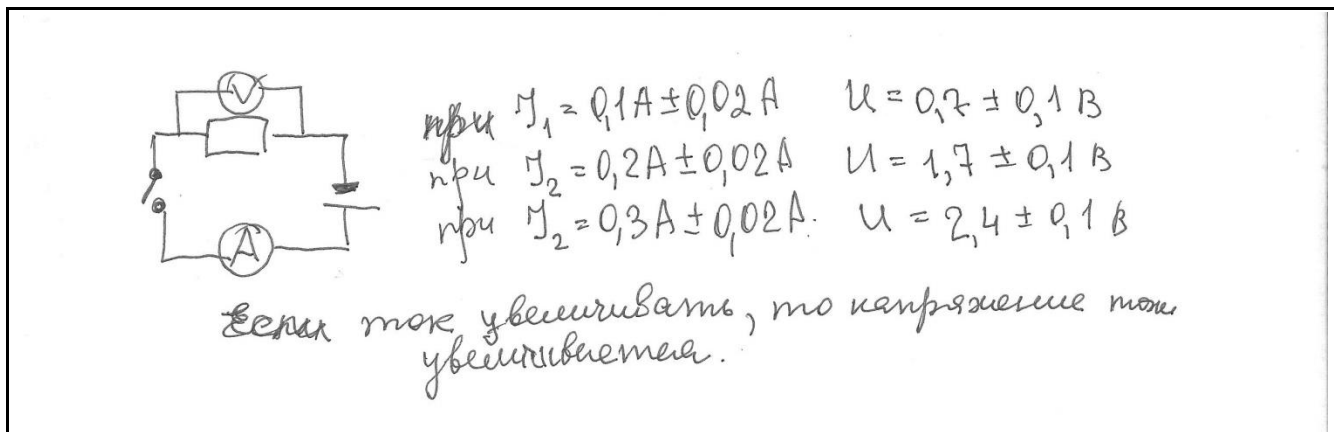 V
A
при I₁ = 0,1А ± 0,02А U = 0,7 ± 0,1 В
при I₂ = 0,2А ± 0,02А U = 1,7 ± 0,1 В
при I₂ = 0,3А ± 0,02А. U = 2,4 ± 0,1 В
Если ток увеличивать, то напряжение тоже
увеличивается.